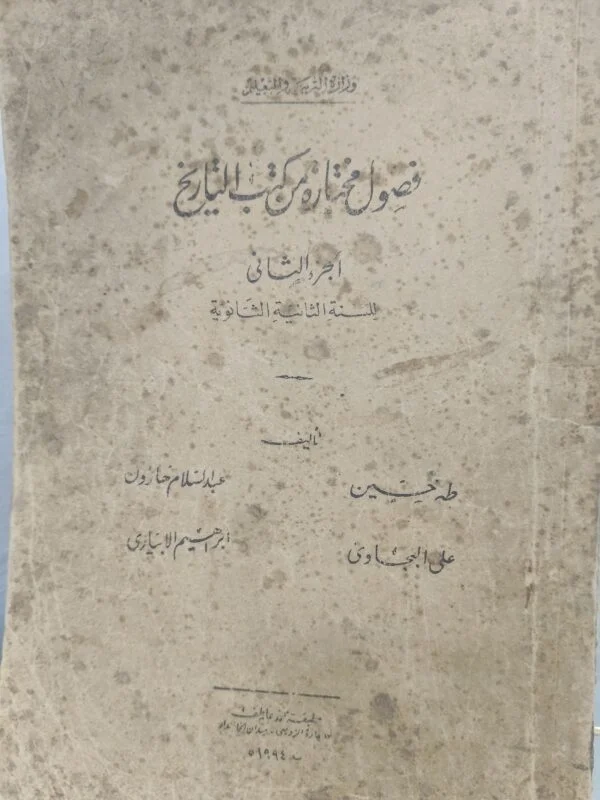 وزارة التربية والتعليم
فصول مختارة من كتب التاريخ
الجزء الثانى
للسنة الثانية الثانوية
تأليف
طه حسين
عبد السلام هارون
على البجاوى
ابراهيم الابيارى
مطبعة محمد عاطف